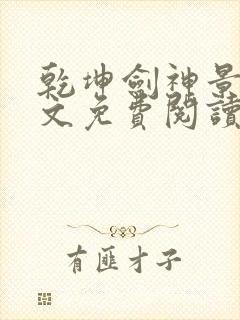 乾坤劍神景
文免費閱讀
有匪才子